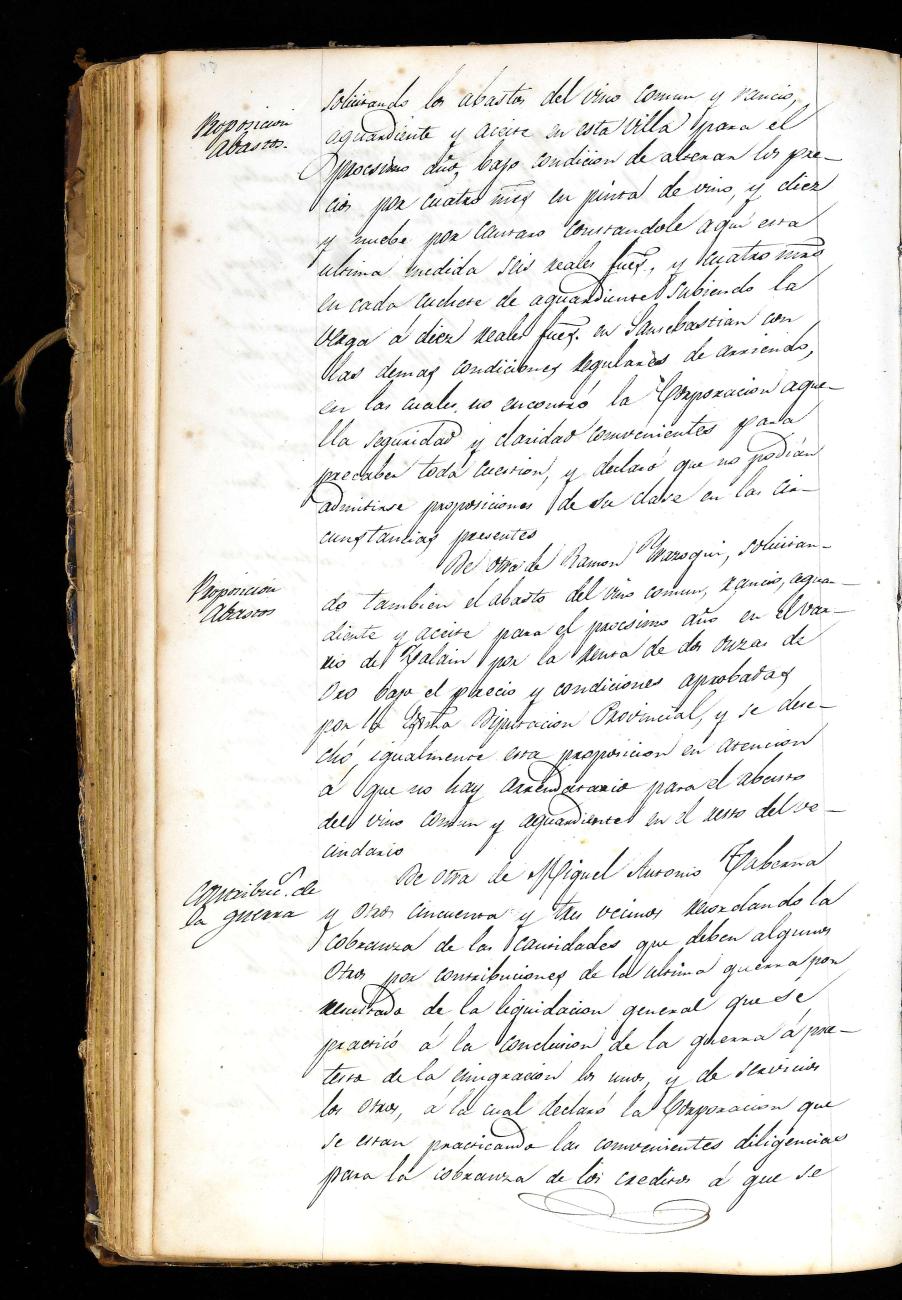 solicitando los abastos del vino comun y rancio,
Proposicion
Abastos.
aguardiente y aceite en esta Villa para el
procsimo año, bajo condicion de alteran los pre-
cios por cuatro mrs en pinta de vino, y diez
y nuebe por cantaro constandole aqui esta
ultima medida seis reales fues., y cuatro mrs
en cada cuchete de aguardiente subiendo la
verga á diez reales fues. en Sansebastian con
las demas condiciones regulares de arriendo,
en las cuales no encontró la Corporacion aque-
lla seguridad y claridad convenientes para
precaber toda cuestion, y declaró que no podian
admitirse proposiciones de su clase en las cir-
cunstancias presentes
De otra de Ramon Yrazoqui, solicitan-
Proposicion
Abastos
do tambien el abasto del vino comun, rancio, agua-
diente y aceite para el procsimo año en el var-
rio de Zalain por la renta de dos onzas de
oro bajo el precio y condiciones aprobadas
por la Exma Diputacion Provincial, y se dese-
chó, igualmente esta proposicion en atencion
á que no hay arrendatario para el abasto
del vino comun y aguardiente en el resto del ve-
cindario
De otra de Miguel Antonio Taberna
Contribuc.s de
la guerra
y otros cincuenta y tres vecinos recordando la
cobranza de las cantidades que deben algunos
otros por contribuciones de la ultima guerra por
resultado de la liquidacion general que se
practicó á la conclusion de la guerra á pre-
testo de la emigracion los unos, y de servicios
los otros, á la cual declaró la Corporacion que
se estan practicando las convenientes diligencias
para la cobranza de los creditos á que se